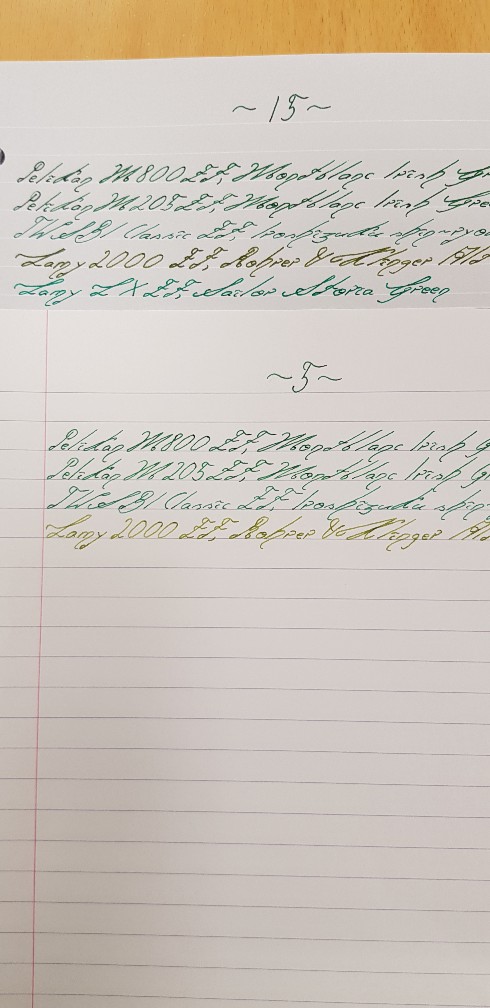 ~15~
Pelikan M800 EF, Montblanc Irish Gr
Pelikan M205 EF, Montblanc Irish Gree
TWSBI Classic EF, Iroshizuku shin-ryo
Lamy 2000 EF, Rohrer & Klinger Alt
Lamy LX EF, Sailor Storia Green
~5~
Pelikan M800 EF, Montblanc Irish G
Pelikan M205 EF, Montblanc Irish Gr
TWSBI Classic EF, Iroshizuku shin-
Lamy 2000 EF, Rohrer & Klinger Alt